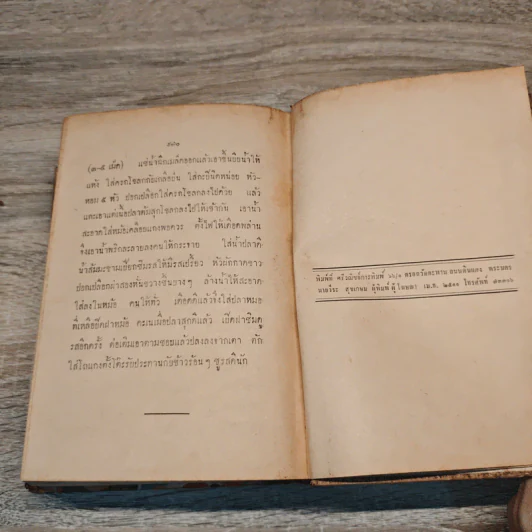 (๓-๕ เม็ด) แช่น้ำฉีกเมล็ดออกแล้วเอาขึ้นบีบน้ำให้
แห้ง ใส่ครกโขลกกับเกลือป่น ใส่กะปินิดหน่อย หัว-
หอม ๕ หัว ปอกเปลือกใส่ครกโขลกลงไปด้วย แล้ว
แกะเอาแต่เนื้อปลาต้มสุกโขลกลงไปให้เข้ากัน เอาน้ำ
สะอาดใส่หม้อเคลือบแกงพอควร ตั้งไฟให้เดือดพล่าน
จึงเอาน้ำพริกละลายลงคนให้กระจาย ใส่น้ำปลาดี
น้ำส้มมะขามเปียกชิมรสให้มีรสเปรี้ยว หัวผักกาดขาว
ปอกเปลือกฝานตามขวางชิ้นบางๆ ล้างน้ำให้สะอาด
ใส่ลงในหม้อ คนให้ทั่ว เดือดดีแล้วจึงใส่ปลาหมอ
ที่เหลือปิดฝาหม้อ คะเนเผื่อปลาสุกดีแล้ว เปิดฝาชิมดู
รสอีกครั้ง ต่อเติมเอาตามชอบแล้วปลงลงจากเตา ตัก
ใส่โถแกงตั้งโต๊ะรับประทานกับข้าวร้อนๆ ชูรสดีนัก
พิมพ์ที่ ถนนดินสอ พระนคร
ผู้พิมพ์ผู้โฆษณา เม.ย. ๒๕๑๑